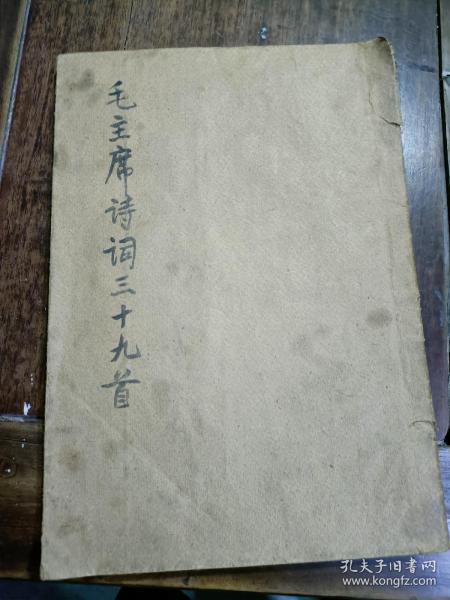 毛主席诗词三十九首
孔夫子旧书网
www.kongfz.com